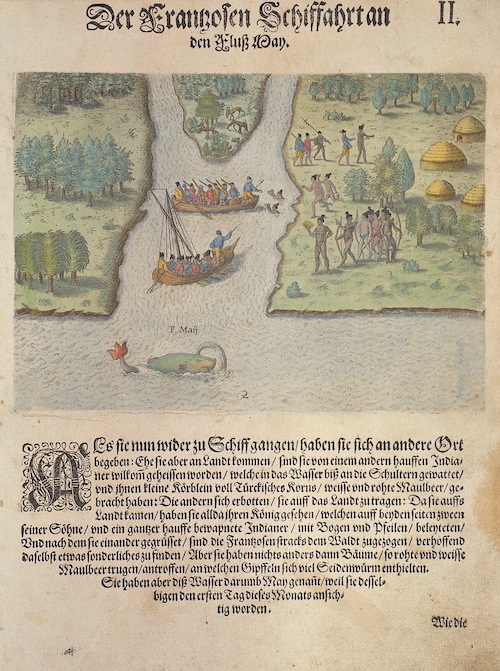 Der Frantzosen Schiffahrt an
II.
den Fluß May.
F. Maij
2
Als sie nun wider zu Schiff gangen / haben sie sich an andere Ort
begeben: Ehe sie aber an Landt kommen / sind sie von einem andern hauffen India-
ner wilkom geheissen worden / welche in das Wasser biß an die Schultern gewattet /
vnd ihnen kleine Körblein voll Türckisches Korns / weisse vnd rohte Maulbeer / ge-
bracht haben: Die andern sich erbotten / sie auff das Landt zu tragen: Da sie auffs
Landt kamen / haben sie allda ihren König gesehen / welchen auff beyden seiten zween
seiner Söhne / vnd ein gantzer hauffe bewapnete Indianer / mit Bogen vnd Pfeilen / beleyteten /
Vnd nach dem sie einander gegrüsset / sind die Frantzosen stracks dem Waldt zugezogen / verhoffend
daselbst etwas sonderliches zu finden / Aber sie haben nichts anders dann Bäume / so rohte vnd weisse
Maulbeer trugen / antroffen / an welchen Gipffeln sich viel Seidenwürm enthielten.
Sie haben aber diß Wasser darumb May genañt / weil sie dessel-
bigen den ersten Tag dieses Monats ansich-
tig worden.
Wie die